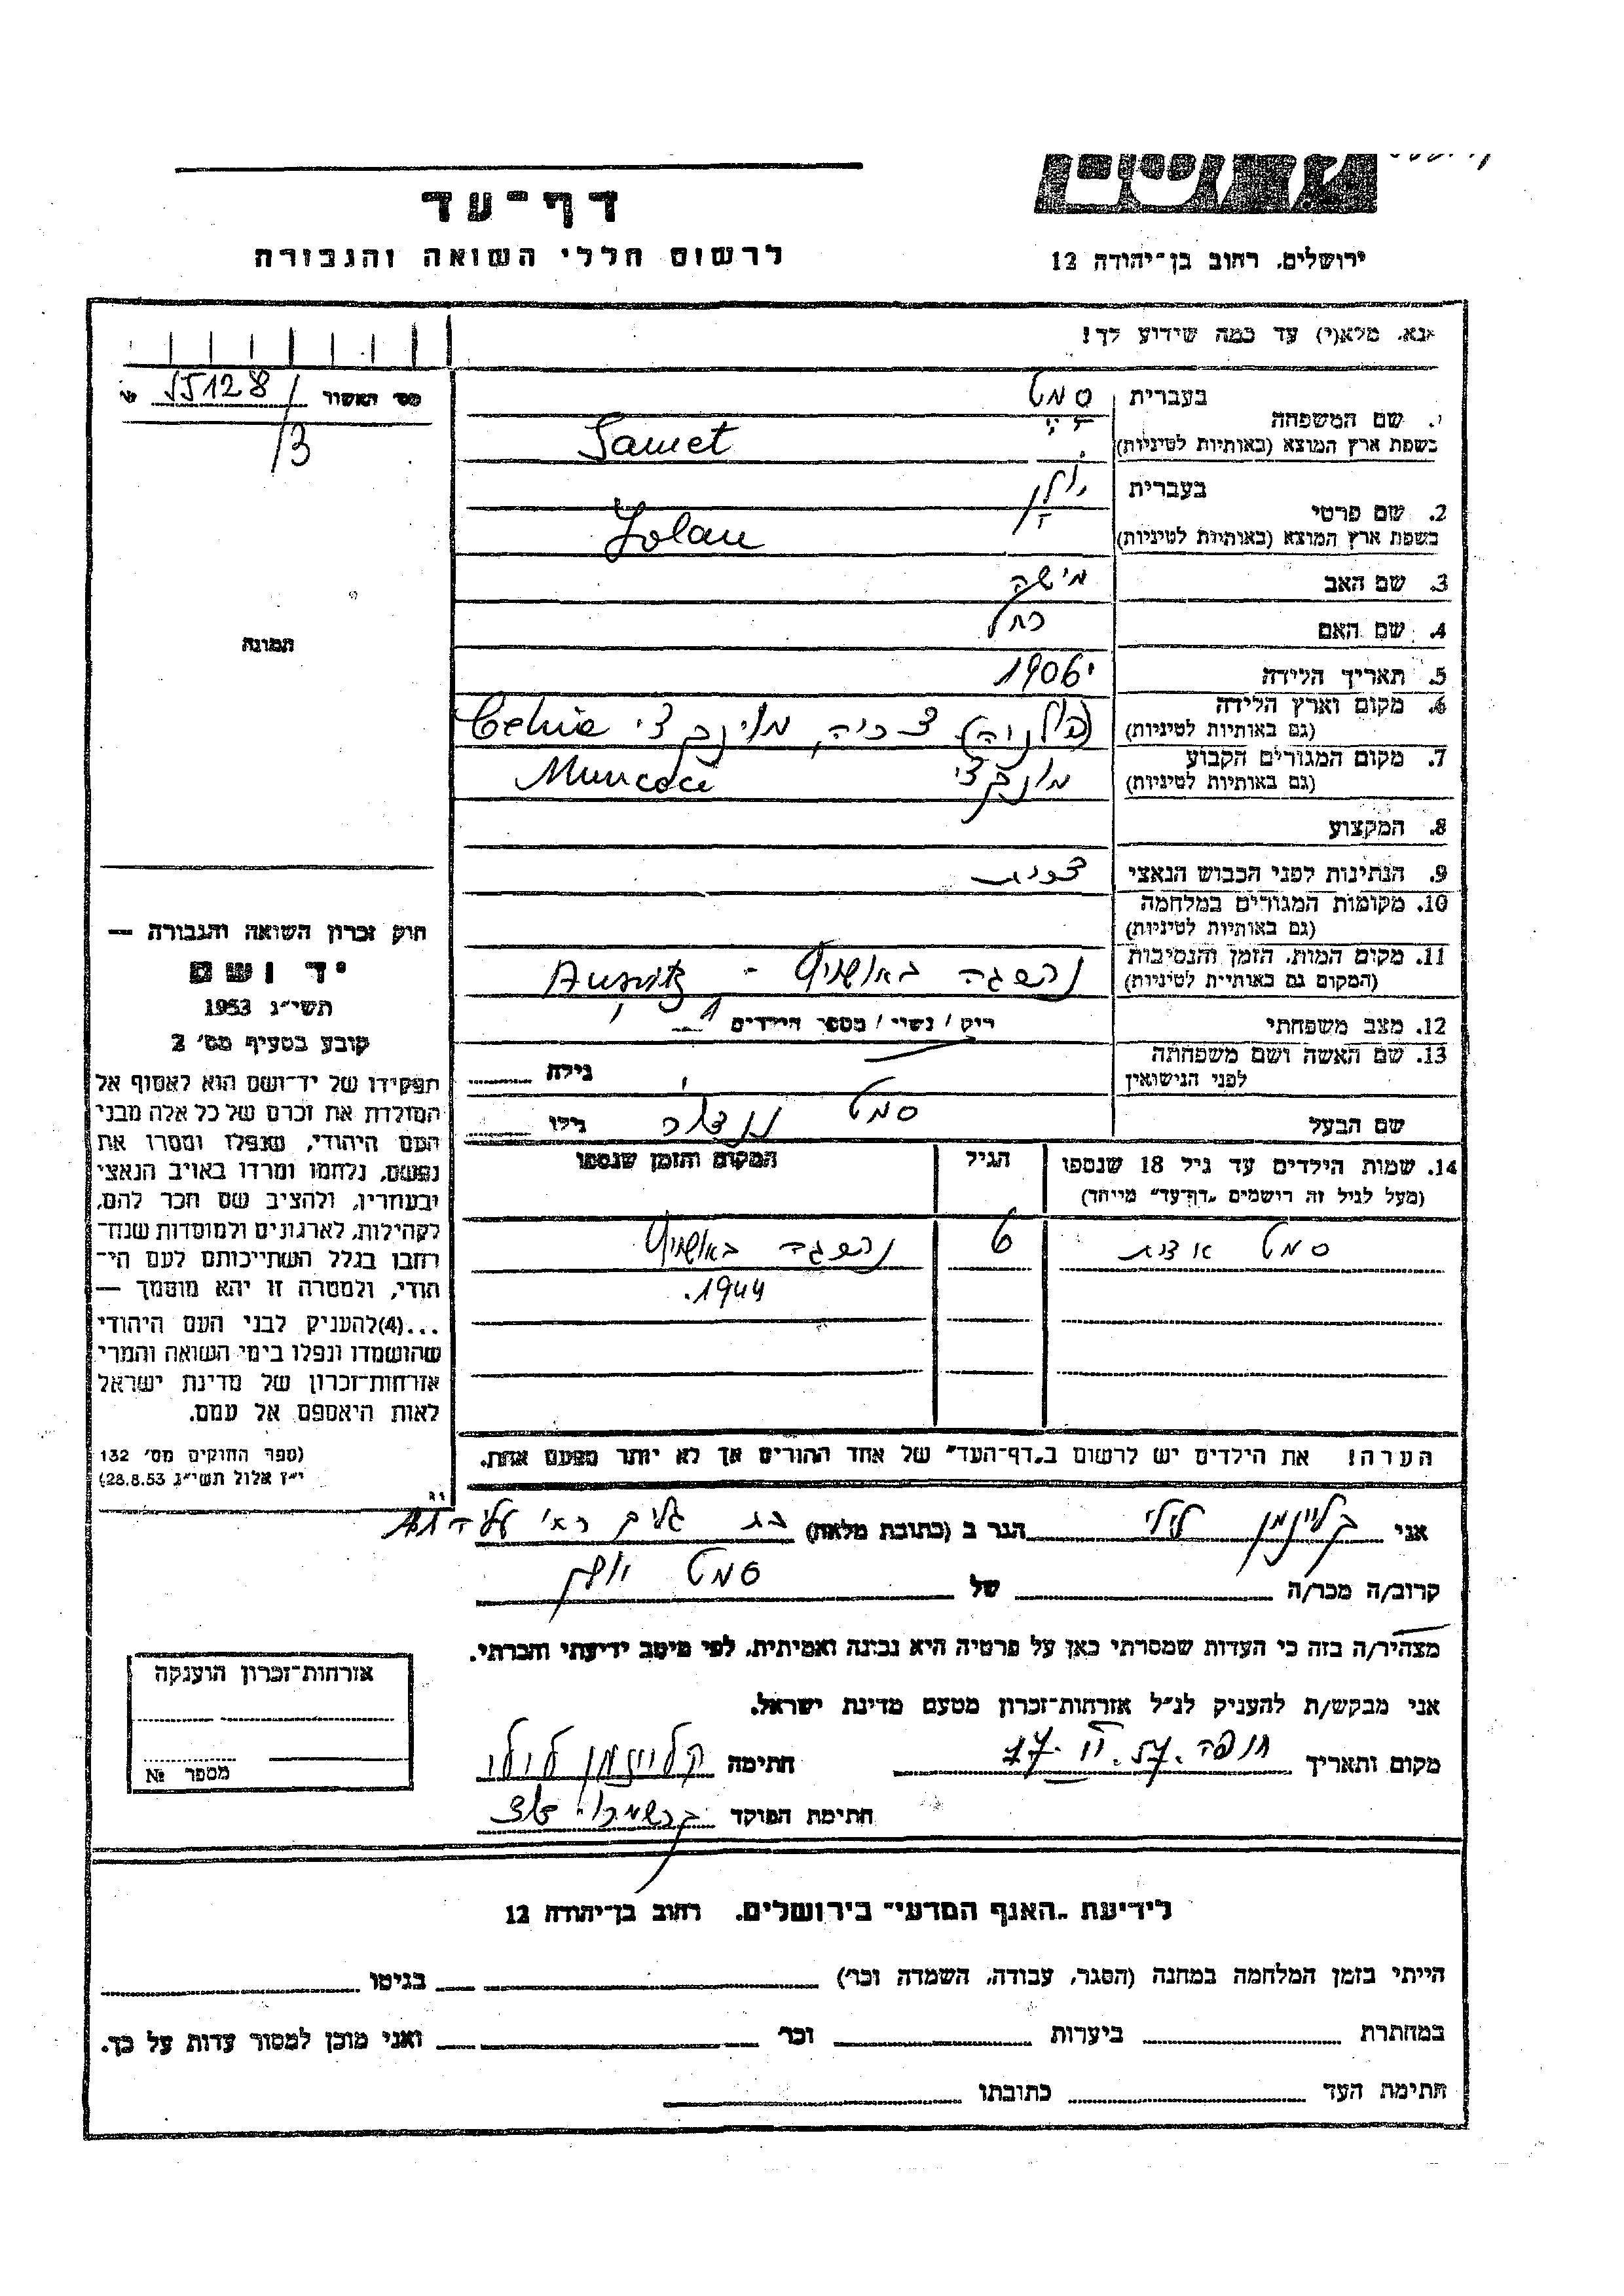 דף-עד
לרשום חללי השואה והגבורה
ירושלים, רחוב בן-יהודה 12
נא, מלא(י) עד כמה שידוע לך!
מס' האשור 55128
/3
תמונה
1. שם המשפחה
בעברית סמט
בשפת ארץ המוצא (באותיות לטיניות) Samet
2. שם פרטי
בעברית יולן
בשפת ארץ המוצא (באותיות לטיניות) Jolan
3. שם האב מישה
4. שם האם רחל
5. תאריך הלידה 1906
6. מקום וארץ הלידה
(גם באותיות לטיניות) צ'כיה, Cehia
7. מקום המגורים הקבוע
(גם באותיות לטיניות) Muncaci
8. המקצוע
9. הנתינות לפני הכבוש הנאצי צ'כית
10. מקומות המגורים במלחמה
(גם באותיות לטיניות)
11. מקום המות, הזמן והנסיבות
(המקום גם באותיות לטיניות) נהרגה באושויץ - Ausvitz
12. מצב משפחתי רוק / נשוי / מספר הילדים 1
13. שם האשה ושם משפחתה
לפני הנישואין גילה
שם הבעל סמט גילו
14. שמות הילדים עד גיל 18 שנספו
(מעל לגיל זה רישמים "דף-עד" מייחד)
הגיל
המקום והזמן שנספו
סמט אדית 6 נהרגה באושויץ
1944.
הערה! את הילדים יש לרשום ב"דף-העד" של אחד ההורים אך לא יותר מפעם אחת.
חוק זכרון השואה והגבורה —
יד ושם
תשי"ג 1953
קובע בסעיף מס' 2
תפקידו של יד-ושם הוא לאסוף אל
המולדת את זכרם של כל אלה מבני
העם היהודי, שנפלו ומסרו את
נפשם, נלחמו ומרדו באויב הנאצי
ובעוזריו, ולהציב שם וזכר להם,
לקהילות, לארגונים ולמוסדות שנח-
רבו בגלל השתייכותם לעם הי-
הודי, ולמטרה זו יהא מוסמך —
...(4)להעניק לבני העם היהודי
שהושמדו ונפלו בימי השואה והמרי
אזרחות-זכרון של מדינת ישראל
לאות היאספם אל עמם.
(ספר החוקים מס' 132
י"ז אלול תשי"ג 28.8.53)
אני קליינמן לילי הגר ב (כתובת מלאה) בת גלים
קרוב/ה מכר/ה של סמט יולן
מצהיר/ה בזה כי העדות שמסרתי כאן על פרטיה היא נכונה ואמיתית, לפי מיטב ידיעתי והכרתי.
אני מבקש/ת להעניק לנ"ל אזרחות-זכרון מטעם מדינת ישראל.
מקום ותאריך חיפה חתימה קליינמן לילי
חתימת הפוקד
אזרחות-זכרון הוענקה
מספר №
לידיעת "האגף המדעי" בירושלים, רחוב בן-יהודה 12
הייתי בזמן המלחמה במחנה (הסגר, עבודה, השמדה וכו') בגיטו
במחתרת ביערות וכו' ואני מוכן למסור עדות על כך.
חתימת העד כתובתו